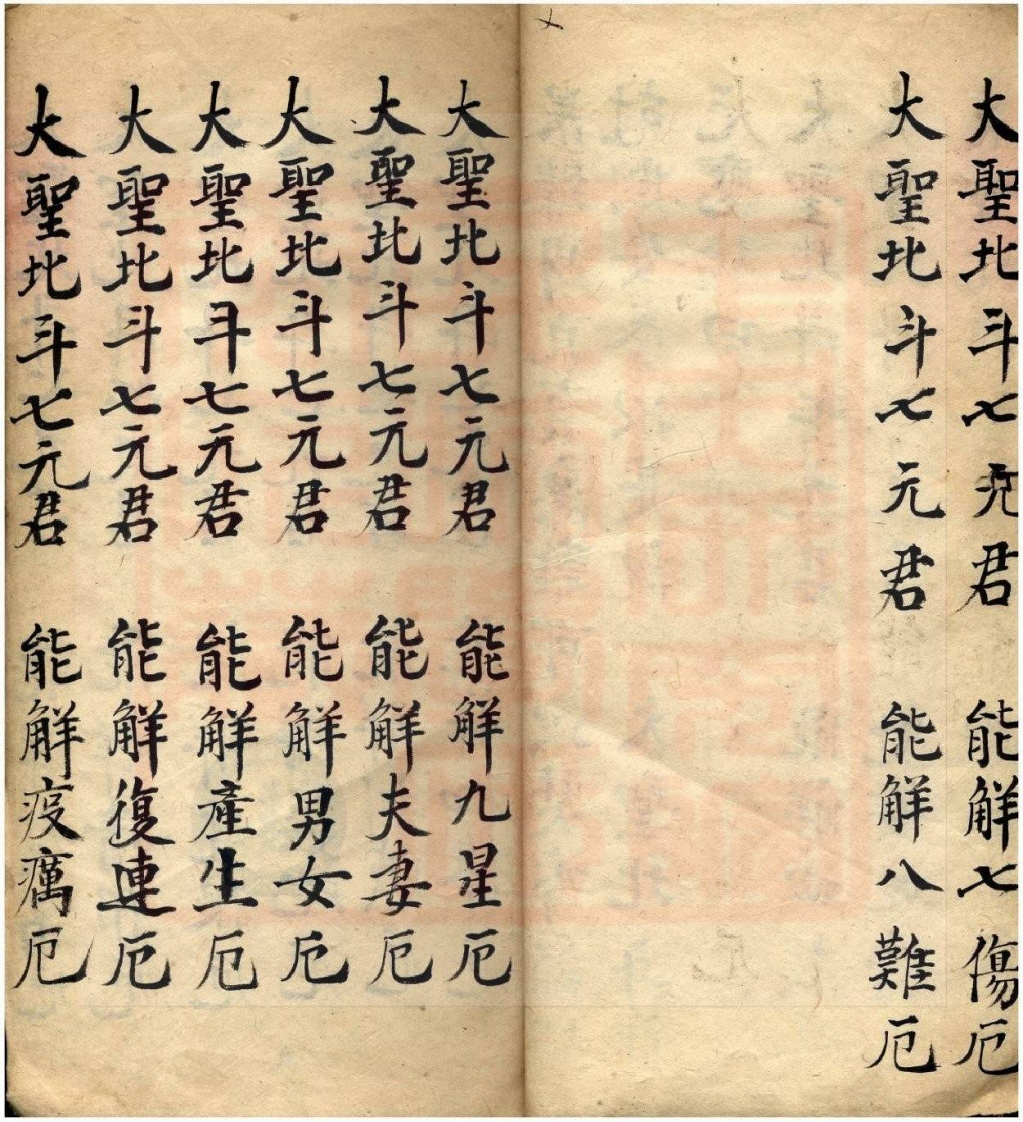 大聖北斗七元君 能解七傷厄
大聖北斗七元君 能解八難厄
大聖北斗七元君 能解九星厄
大聖北斗七元君 能解夫妻厄
大聖北斗七元君 能解男女厄
大聖北斗七元君 能解產生厄
大聖北斗七元君 能解復連厄
大聖北斗七元君 能解疫癘厄